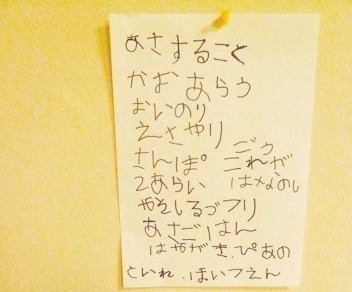 あさすること
かおあらう
おいのり
えさやり
さんぽ ごう
2あらい これが
やさしるづフリ はなのし
あさごはん
はやがき、ぴあの
といれ、ほいつえん